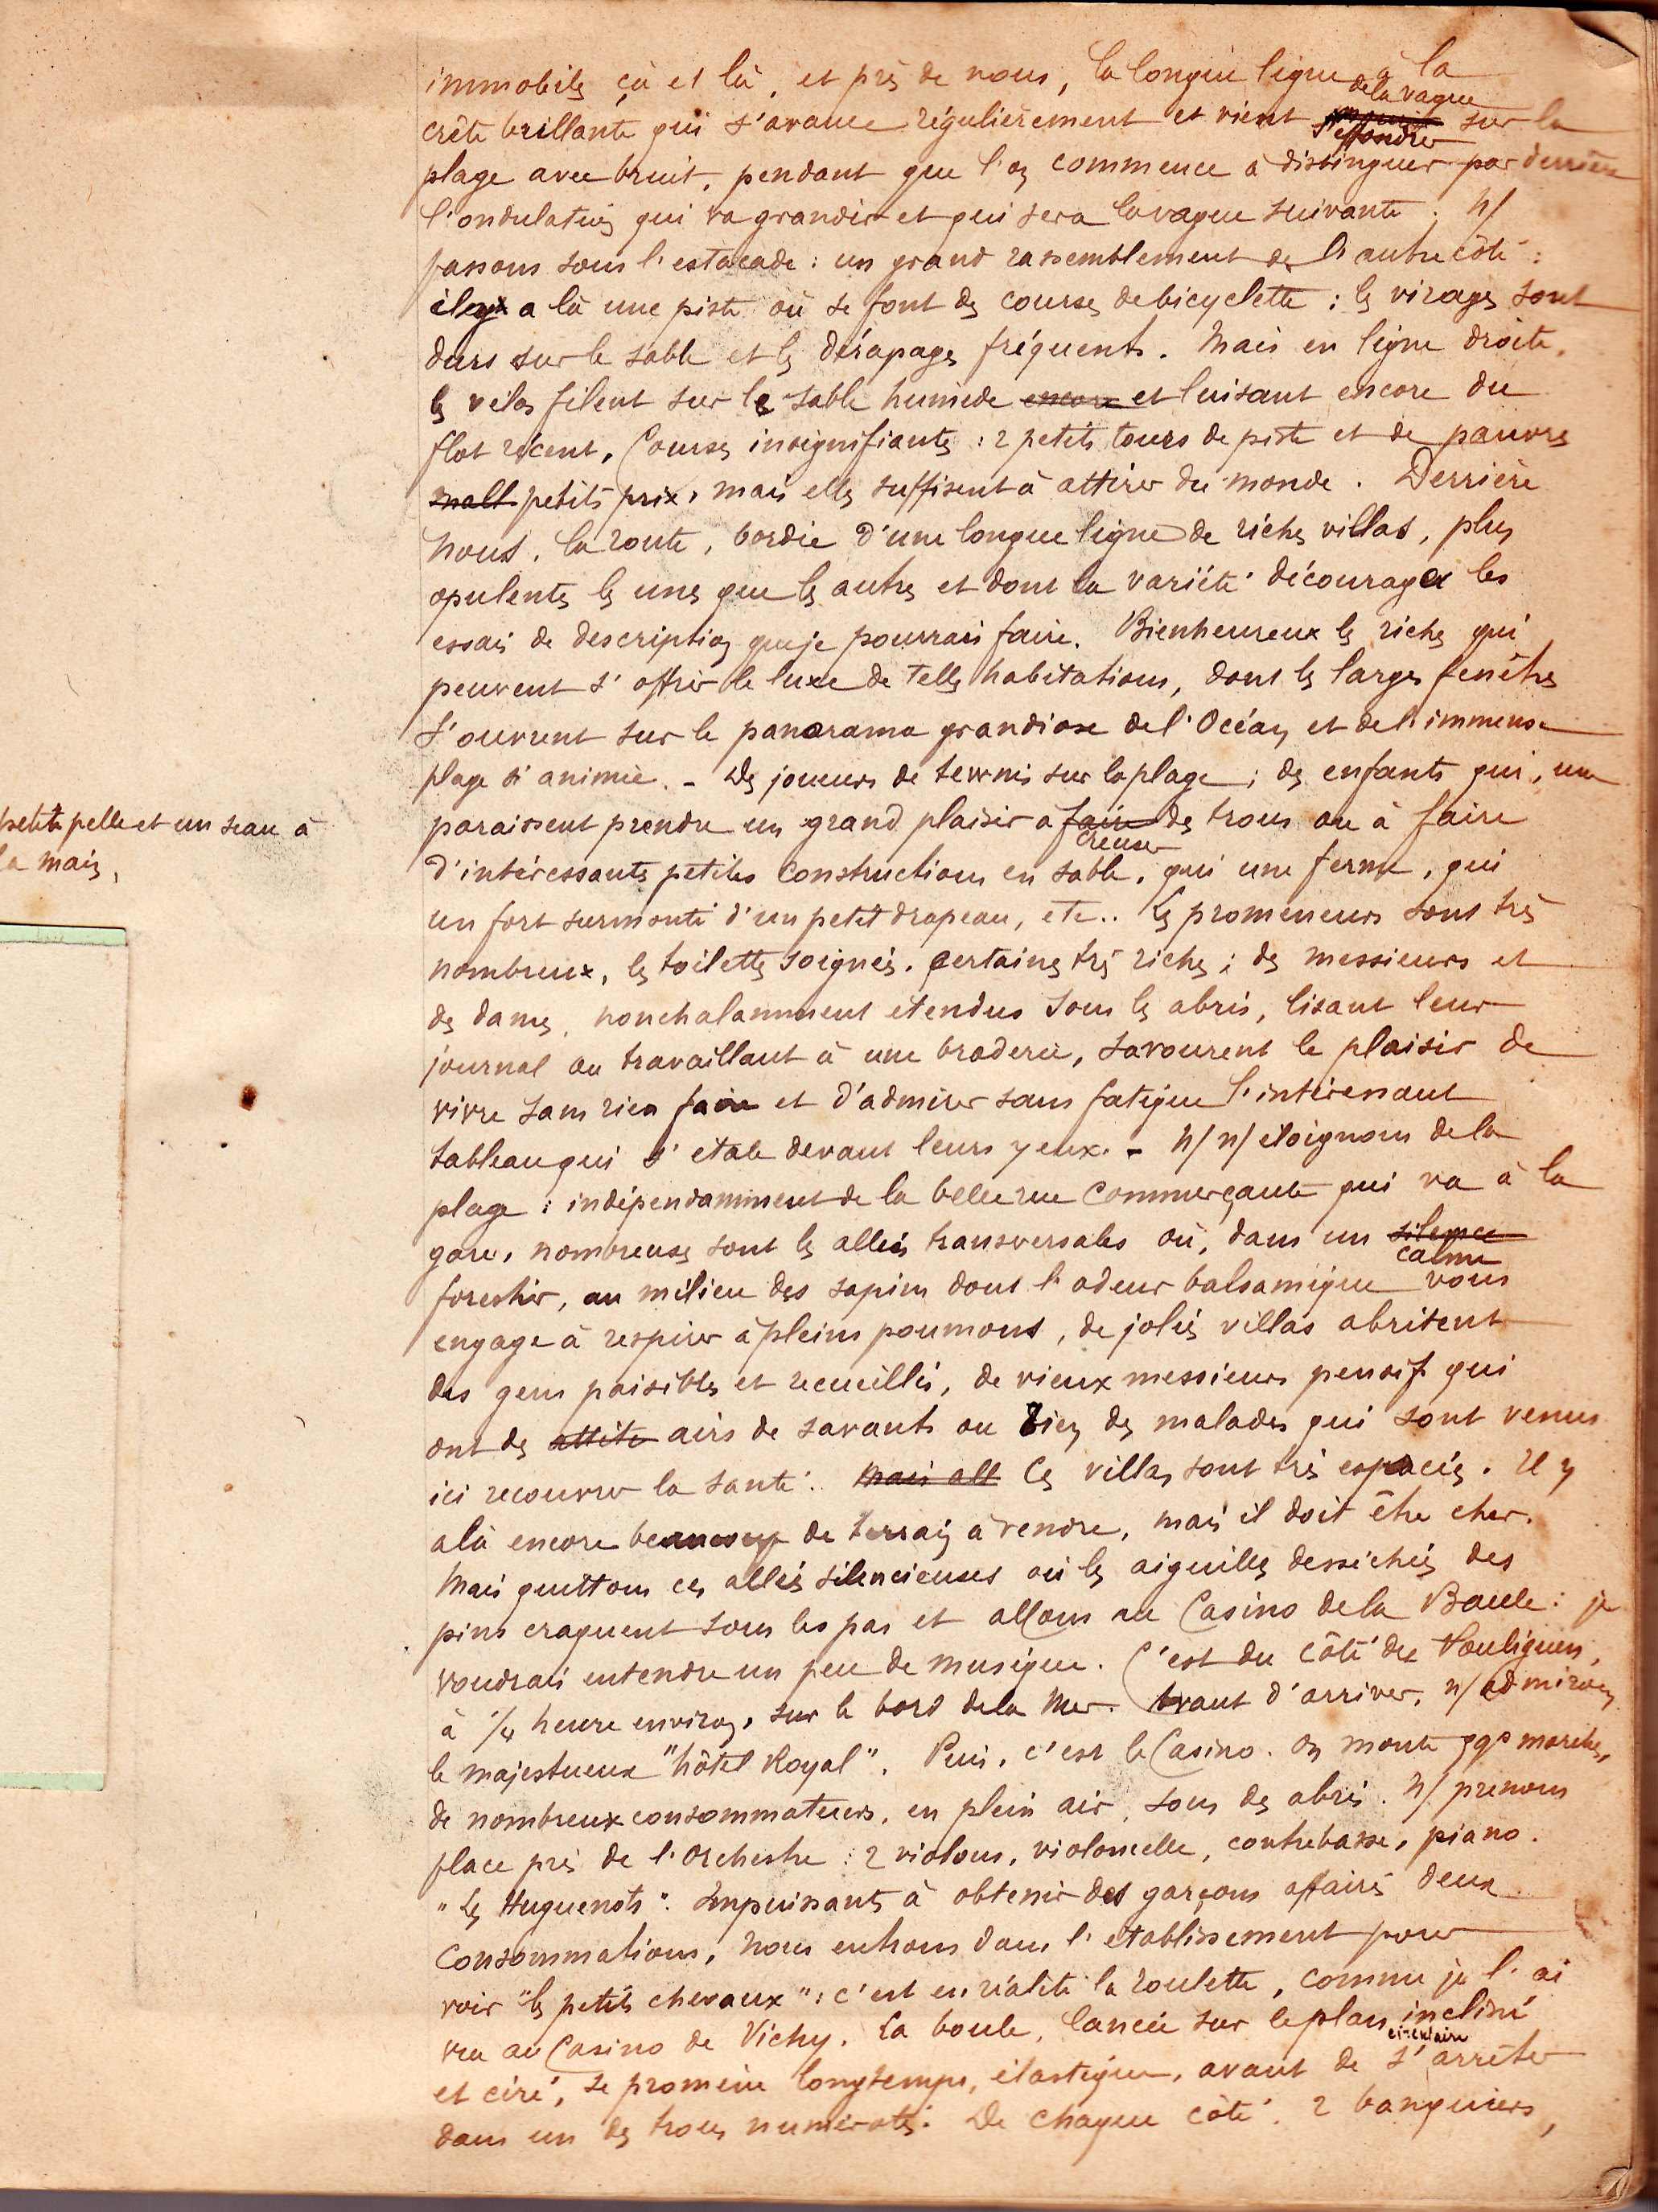 immobiles çà et là, et près de nous, la longue ligne à la
de la vague
crête brillante qui s'avance régulièrement et vient sur la
s'effondrer
plage avec bruit, pendant que l'on commence à distinguer par derrière
l'ondulation qui va grandir et qui sera la vague suivante. n/
passons sous l'estacade : un grand rassemblement de l'autre côté :
il y a là une piste où se font des courses de bicyclette : les virages sont
durs sur le sable et les dérapages fréquents. Mais en ligne droite,
les vélos filent sur le sable humide encore et luisant encore du
flot récent. Courses insignifiantes : 2 petits tours de piste et de pauvres
petits prix, mais elles suffisent à attirer du monde. Derrière
nous, la route, bordée d'une longue ligne de riches villas, plus
opulentes les unes que les autres et dont la variété décourage les
essais de description que je pourrais faire. Bienheureux les riches qui
peuvent s'offrir le luxe de telles habitations, dont les larges fenêtres
s'ouvrent sur le panorama grandiose de l'Océan et de l'immense
plage si animée. - Des joueurs de tennis sur la plage ; des enfants qui, une
petite pelle et un seau à
la main,
paraissent prendre un grand plaisir à faire des trous ou à faire
creuser
d'intéressantes petites constructions en sable, qui une ferme, qui
un fort surmonté d'un petit drapeau, etc.. Les promeneurs sont très
nombreux, les toilettes soignées, certaines très riches ; des messieurs et
des dames, nonchalamment étendus sous les abris, lisant leur
journal ou travaillant à une broderie, savourent le plaisir de
vivre sans rien faire et d'admirer sans fatigue l'intéressant
tableau qui s'étale devant leurs yeux. - n/ n/ éloignons de la
plage : indépendamment de la belle rue commerçante qui va à la
gare, nombreuses sont les allées transversales où, dans un silence
calme
forestier, au milieu des sapins dont l'odeur balsamique vous
engage à respirer à pleins poumons, de jolies villas abritent
des gens paisibles et recueillis, de vieux messieurs pensifs qui
ont des attitu airs de savants ou bien des malades qui sont venus
ici recouvrer la santé. Mais all Ces villas sont très espacées. Il y
a là encore beaucoup de terrain à vendre, mais il doit être cher.
Mais quittons ces allées silencieuses où les aiguilles desséchées des
pins craquent sous les pas et allons au Casino de la Baule : je
voudrais entendre un peu de musique. C'est du côté du Pouliguen,
à 1/4 heure environ, sur le bord de la Mer. Avant d'arriver, n/ admirons
le majestueux "hôtel Royal". Puis, c'est le Casino. On monte qqs marches,
de nombreux consommateurs, en plein air, sous des abris. N/ prenons
place près de l'orchestre : 2 violons, violoncelle, contrebasse, piano.
"Les Huguenots". Impuissants à obtenir des garçons affairés deux
consommations, nous entrons dans l'établissement pour
voir "les petits chevaux" : c'est en réalité la roulette, comme je l'ai
vu au Casino de Vichy. La boule, lancée sur le plan incliné
circulaire
et ciré, se promène longtemps, élastique, avant de s'arrêter
dans un des trous numérotés. De chaque côté, 2 banquiers,